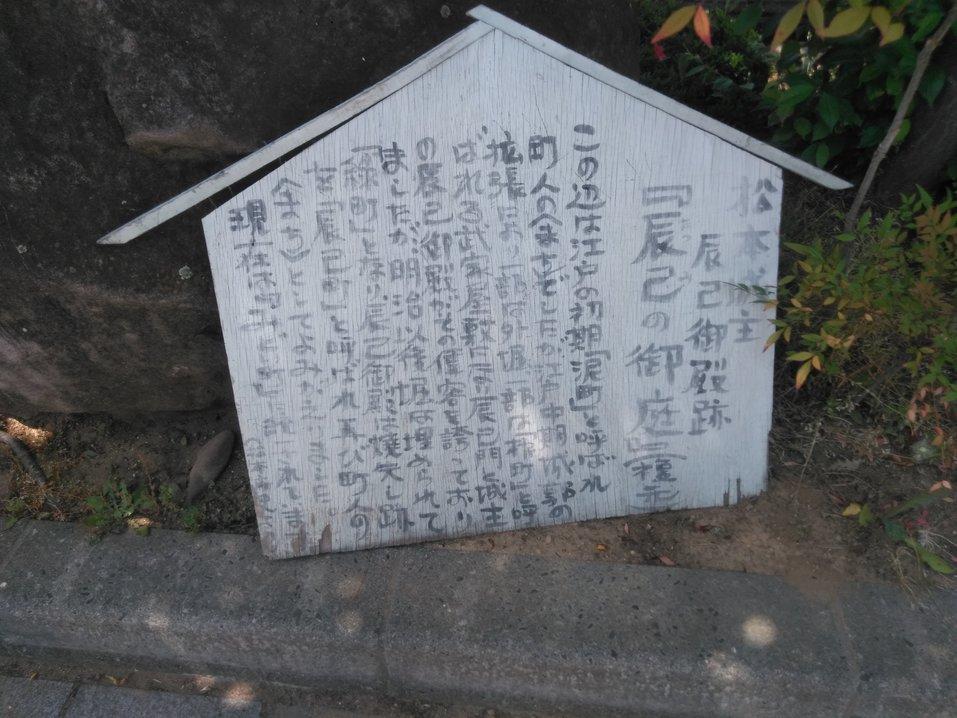 松本城主
辰己御殿跡
『辰己の御庭』
この辺は江戸の初期「泥町」と呼ばれ
町人の金まちでしたが江戸中期城郭の
拡張により一部は外堀一部は柳町と呼
ばれる武家屋敷にこの辰己門と城主
の辰己御殿がその偉容を誇っており
ましたが明治以後堀は埋められて
「緑町」となり、辰己御殿は焼失し跡
を「辰己町」と呼ばれ再び町人の
金まち)としてよみがえりました。
現在は